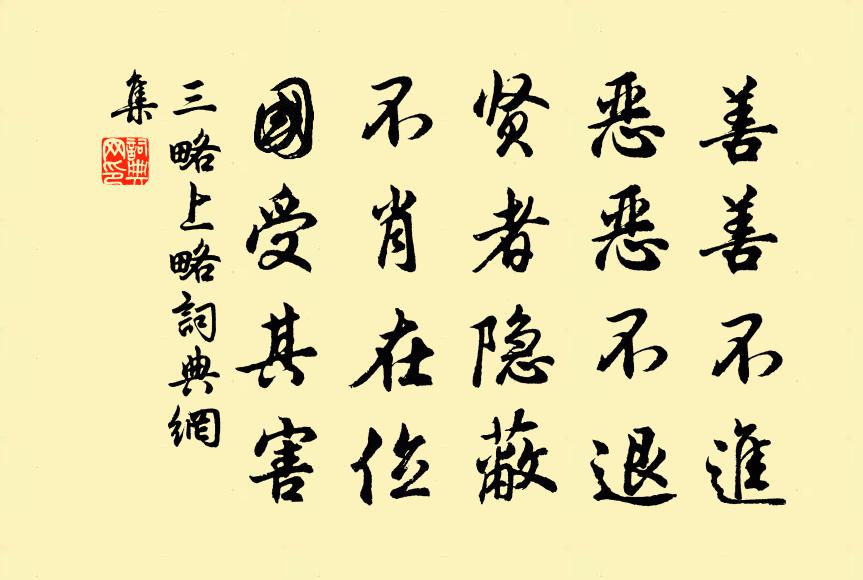 善善不進
惡惡不退
贤者隐蔽
不肖在位
國受其害
三略上略詞典網
集
詞典
网印